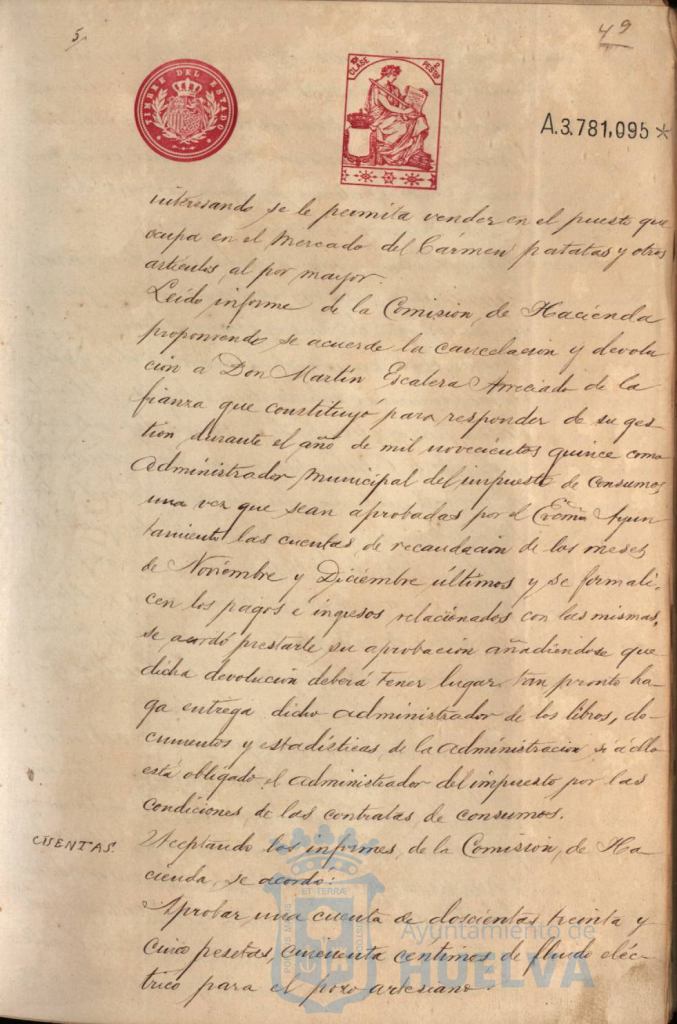 5
49
TIMBRE DEL ESTADO
CLASE
PESTAS
A.3.781,095*
interesando se le permita vender en el puesto que
ocupa en el Mercado del Cármen patatas y otros
artículos al por mayor.
Leido informe de la Comision de Hacienda
proponiendo se acuerde la cancelación y devolu
ción a Don Martín Escalera Arreciado de la
fianza que constituyó para responder de su ges-
tion durante el año de mil novecientos quince como
Administrador Municipal del impuesto de Consumos
una vez que sean aprobadas por el Excmo Ayun
tamiento las cuentas de recaudación de los meses
de Noviembre y Diciembre últimos y se formali-
cen los pagos e ingresos relacionados con las mismas,
se acordó prestarle su aprobación añadiendose que
dicha devolución deberá tener lugar tan pronto ha-
ga entrega dicho administrador de los libros, do-
cumentos y estadísticas de la administración si á ello
está obligado el administrador del impuesto por las
condiciones de las contratas de consumos.
CUENTAS
Aceptando los informes de la Comisión de Ha-
cienda, se acordó:
Aprobar una cuenta de doscientas treinta y
cinco pesetas, cincuenta centimos de fluido eléc-
trico para el pozo artesiano.
ET TERRÆ
Ayuntamiento de
HUELVA